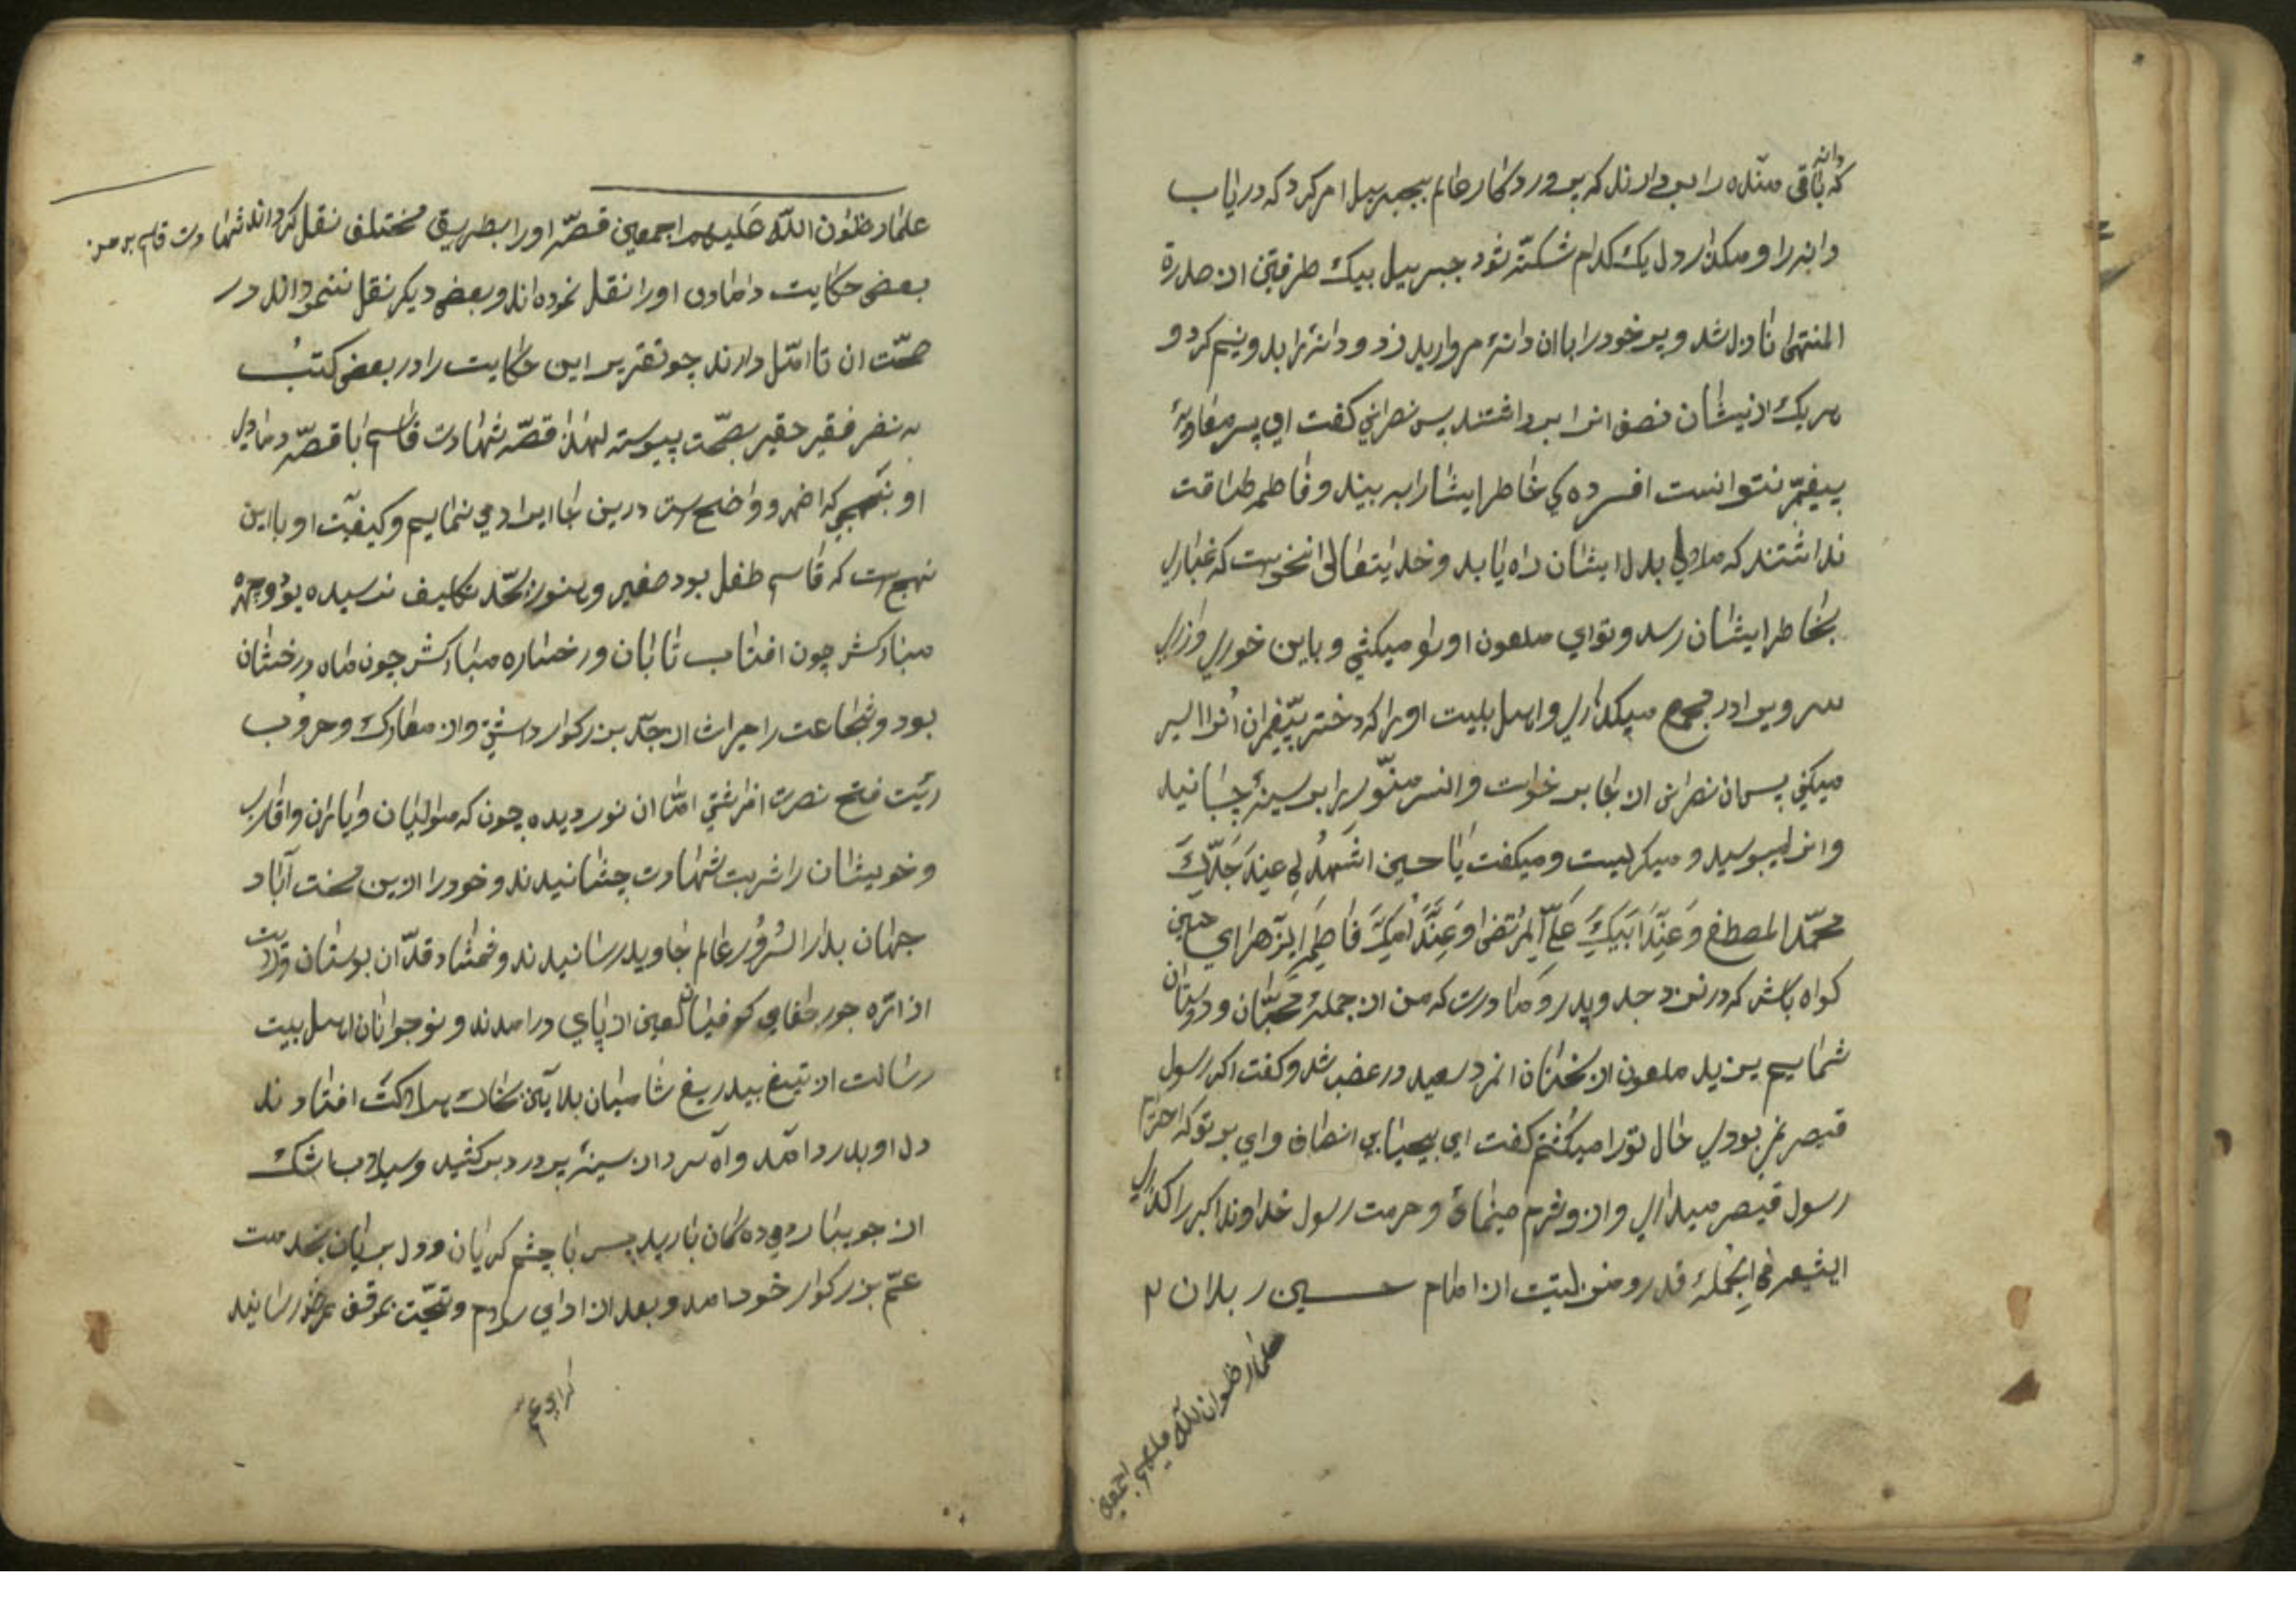 دانه
که باقی مانده را بردارند که پروردکار عالم بجبرییل امر کرد که دریاب
دانه را و مکذار دل یک کدام شکسته شود جبرییل بیک طرفتین از صدرة
المنتهی نازل شد و پر خود را با ان دانهٔ مروارید زد و دانه را بدو نیم کرد و
هر یک از نیشان نصف انرا برداشتند پس نصرانی کفت ای پسر معاویهٔ
پیغمبر نتوانست افسرده کی خاطر ایشانرا به بیند و فاطمه طاقت
نداشتند که ملالی بدل ایشان راه یابد و خدایتعالی نخواست که غباری
بخاطر ایشان رسد و تو ای ملعون او را میکشی و باین خوری و زاری
سر ویرا در مجمع میکذاری و اهل بیت او را که دختر پیغمبران انرا اسیر
میکنی پس ان نصرانی از جا برخواست و انسر منور را بر سینه چسبانید
و انرا میبوسید و میکریست و میکفت یا حسین اشهد لی عِندَ جَدِّکَ
محمّد المصطفی وَعِندَ اَبیکَ عَلیّ المرُتضی وَعِندَ اُمِّکَ فَاطِمَةِ الزّهرا ای حسین
کواه باش که در نزد جد و پدر و مادرت که من از جملهٔ محبّان و دوستان
شمایم یزید ملعون از سخنان انمرد سعید در غضب شد و کفت اکر رسول
قیصر نمی بودی حال تو را میکشتم کفت ای بیحیا بی انصاف وای بر تو که احترام
رسول قیصر میداری و از و شرم مینمائ و حرمت رسول خداوند اکبر را کذاری
ایشعر فی الجمله قدر و منزلیت از امام حسین ر بدان ۲
علما رظوان اللّه علیهم اجمعین
علما رظوان اللّه عَلیهم اجمعین قصّه او را بطریق مختلف نقل کرده اند شهادت قاسم بن حسن
بعضی حکایت دامادی او را نقل نموده اند و بعضی دیکر نقل ننموداند و در
صحّت ان تاامّل دارند چو تقریر این حکایت را در بعضی کتب
به نضر فقیر حقیر بصحّت پیوسته لهذا قصّه شهادت قاسم با قصّه دامادی
او بنهجی که اضهر و واضح است درین جا ایراد می نمایم و کیفیّت او باین
نهج است که قاسم طفل بود صغیر و هنوز بحّد تکلیف نرسیده بود و چهره
مبارکش چون افتاب تابان و رخساره مبارکش چون ماه درخشان
بود و شجاعت را میراث از جدّ بزرکوار داشتی و از معارک و حروب
رئیت فتح نصرت افراشتی امّا ان نور دیده چون که موالیان و یاران و اقارب
و خویشان را شربت شهادت چشانیدند و خود را ازین محنت آباد
جهان بدار السُرور عالم جاوید رسانیدند و شمشاد قدّان بوستان ولایت
از اثره جور جفای کوفیان لعین از پای درامدند و نوجوانان اهل بیت
رسالت از تیغ بیدریغ شامیان بلا آیین بخاک هلاکت افتادند
دل او بدرد آمد و آه سرد از سینه پر درد برکشید و سیلاب اشک
از جویبار دیده کان بارید پس با چشم کریان و دل بریان بخدمت
عمّ بزرکوار خود امد و بعد از ادای سلام و تحیّت بموقف عرض رسانید
کرای عمّ